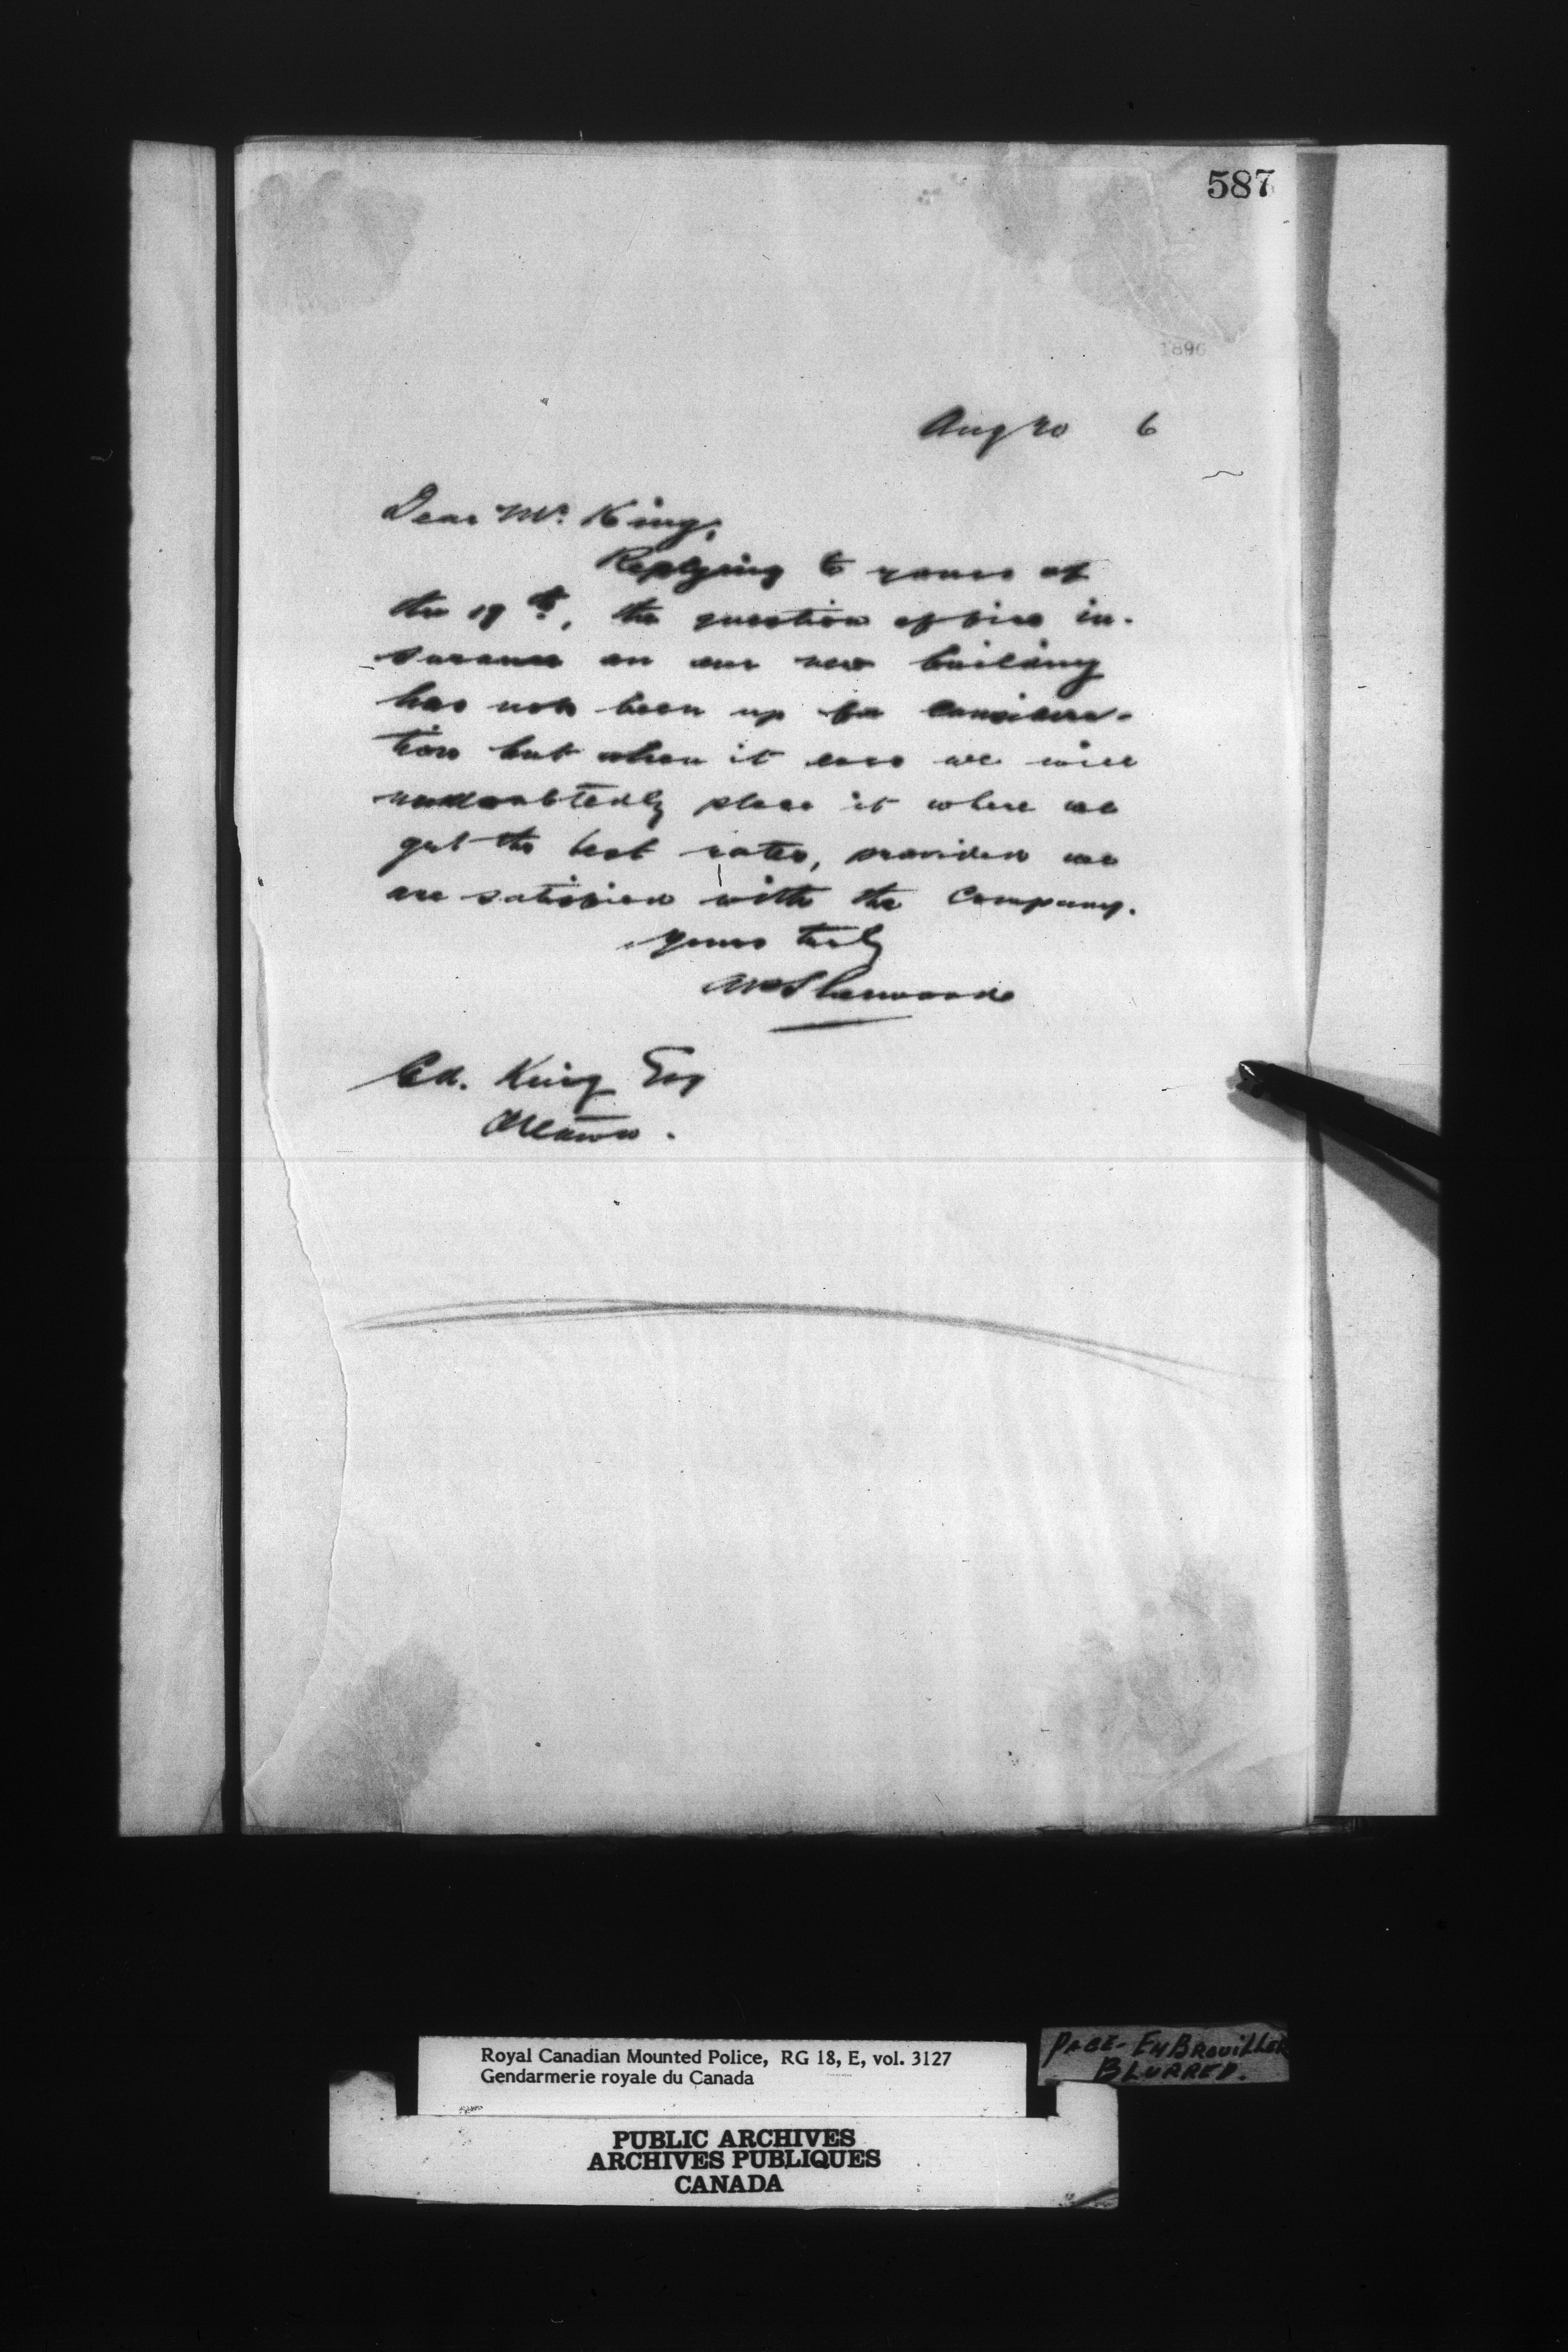 587
1896
Aug 20 6
Dear Mr. King,
Replying to yours of
the 19th, the question of fire in-
surance on our new building
has not been up for considera-
tion but when it does we will
undoubtedly place it where we
get the best rates, provided we
are satisfied with the Company.
Yours truly
AP Sherwood
Ed. King Esq
Ottawa.
Royal Canadian Mounted Police, RG 18, E, vol. 3127
Gendarmerie royale du Canada
PAGE - EMBROUILLER
BLURRED.
PUBLIC ARCHIVES
ARCHIVES PUBLIQUES
CANADA